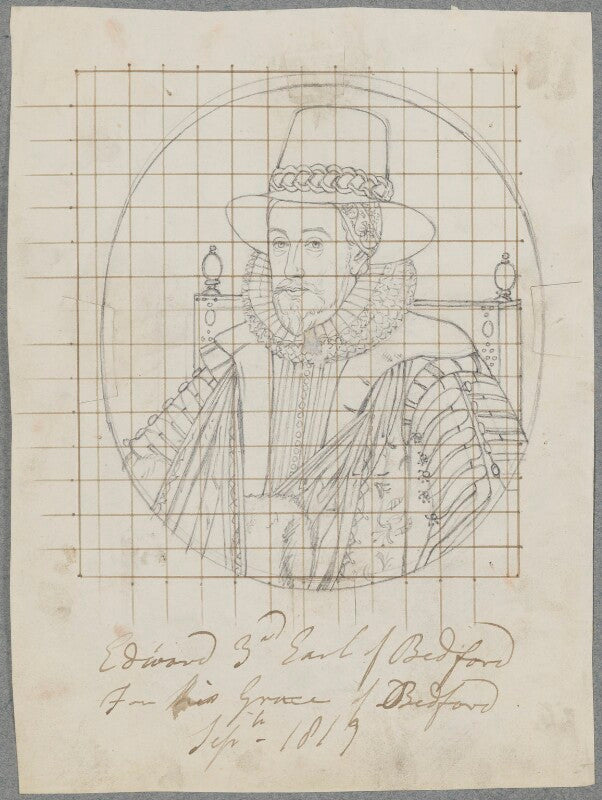 Edward 3rd Earl of Bedford
For his Grace of Bedford
Septh - 1819